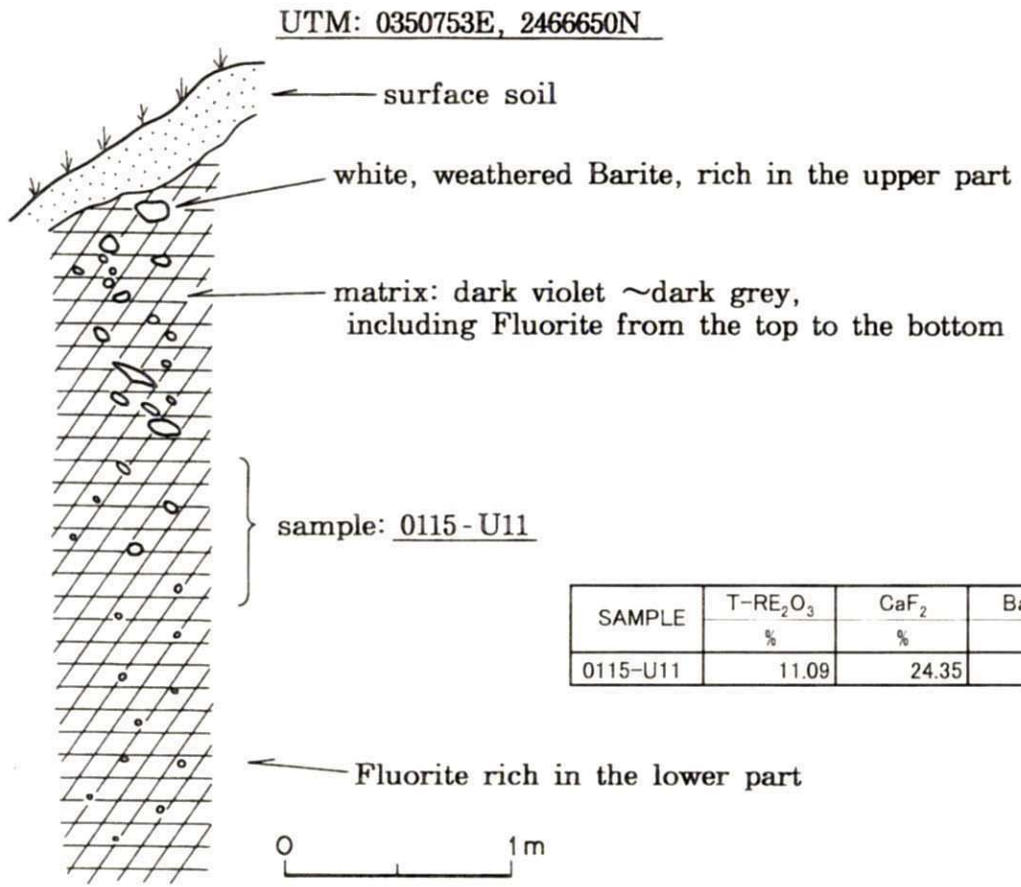 UTM: 0350753E, 2466650N
surface soil
white, weathered Barite, rich in the upper part
matrix: dark violet ~dark grey,
including Fluorite from the top to the bottom
sample: 0115-U11
SAMPLE T-RE₂O₃ CaF₂
% %
0115-U11 11.09 24.35
Fluorite rich in the lower part
0 1m